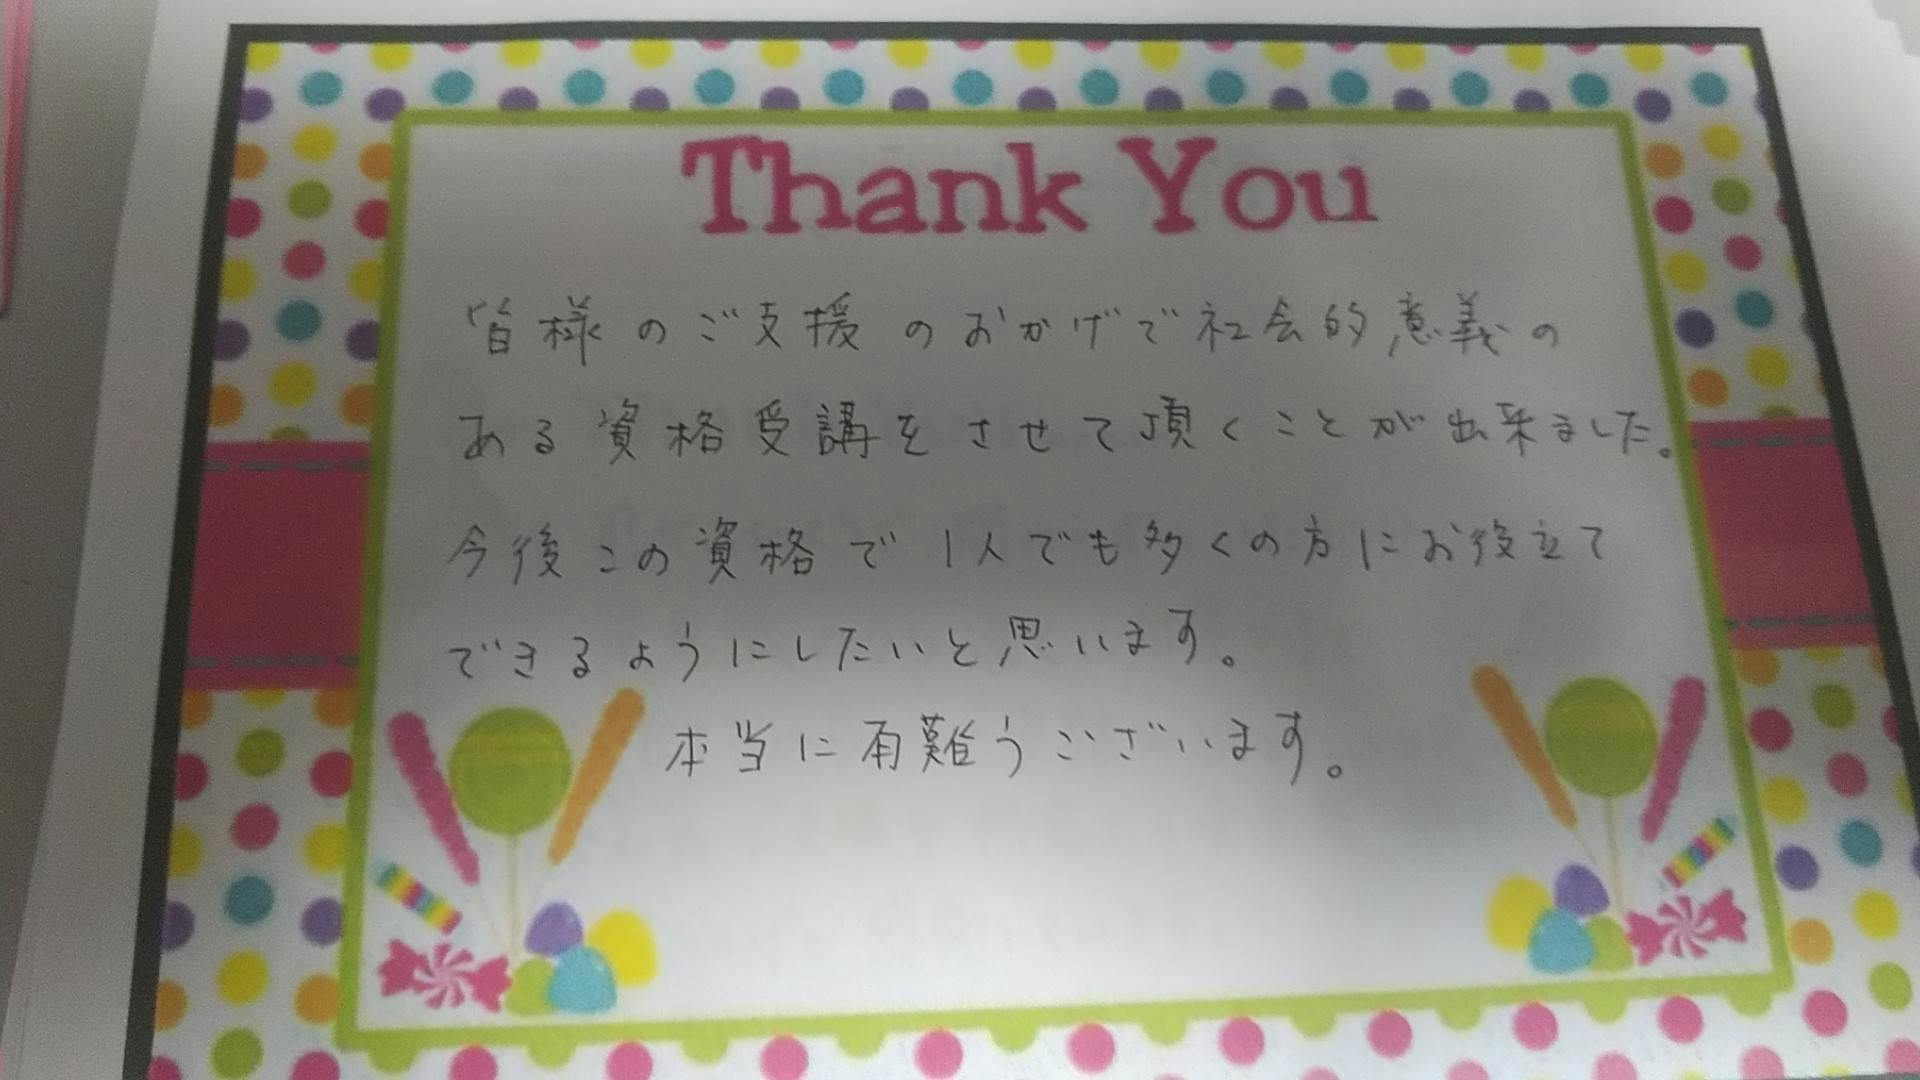 Thank You
皆様のご支援のおかげで社会的意義の
ある資格受講をさせて頂くことが出来ました。
今後この資格で1人でも多くの方にお役立て
できるようにしたいと思います。
本当に有難うございます。